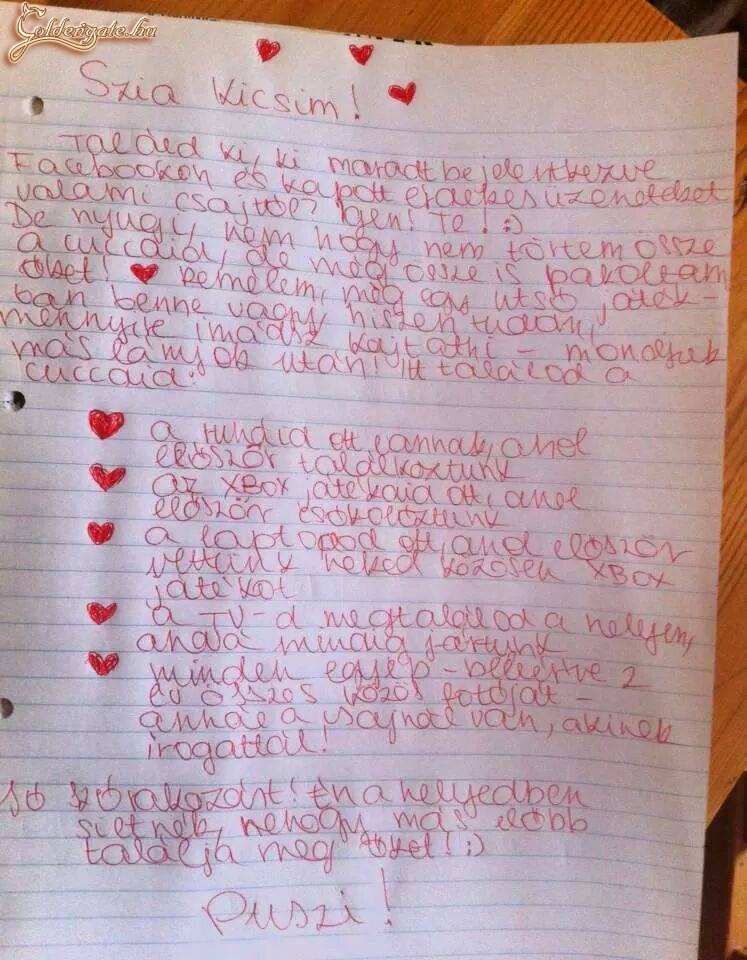 Goldengate.hu
Szia Kicsim!
Találd ki, ki maradt bejelentkezve
Facebookon és kapott érdekes üzeneteket
valami csajtól? Igen! Te! :)
De nyugi, nem hogy nem törtem össze
a cuccaid, de még össze is pakoltam
őket! Remélem, még egy utsó játék-
ban benne vagy, hiszen tudom,
mennyire imádsz kajtatni – mondjuk
más lányok után! Itt találod a
cuccaid:
a ruháid ott vannak, ahol
először találkoztunk
az XBOX játékaid ott, ahol
először csókolóztunk
a laptopod ott, ahol először
vettünk neked közösen XBOX
játékot
a TV-d megtalálod a helyen,
ahová mindig jártunk
minden egyéb – beleértve 2
év összes közös fotóját –
annál a csajnál van, akinek
irogattál!
Jó szórakozást! Én a helyedben
sietnék, nehogy más előbb
találja meg őket! ;)
Puszi!